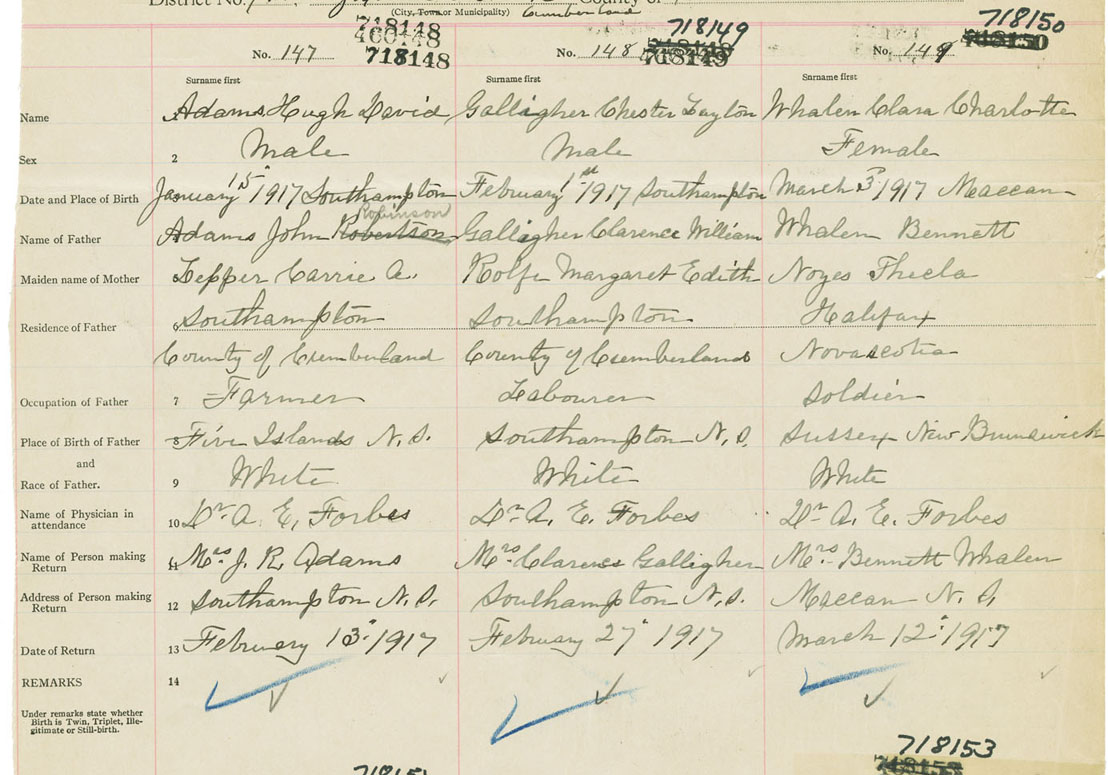 District No. County of
(City, Town or Municipality) Cumberland
718148 718149 718150
460148 718149 718150
No. 147 718148 No. 148 No. 149
Surname first Surname first Surname first
Name Adams Hugh David Gallagher Chester Layton Whalen Clara Charlotte
Sex 2 Male Male Female
Date and Place of Birth January 15" 1917 Southampton February 1st 1917 Southampton March 3rd 1917 Maccan
Robinson
Name of Father Adams John Robertson Gallagher Clarence William Whalen Bennett
Maiden name of Mother Lepper Carrie A. Rolfe Margaret Edith Noyes Thecla
Residence of Father 6 Southampton Southampton Halifax
County of Cumberland County of Cumberland Novascotia
Occupation of Father 7 Farmer Labourer Soldier
Place of Birth of Father 8 Five Islands N.S. Southampton N.S. Sussex New Brunswick
and
Race of Father. 9 White White White
Name of Physician in attendance 10 Dr A. E. Forbes Dr A. E. Forbes Dr A. E. Forbes
Name of Person making Return 11 Mrs J. R. Adams Mrs Clarence Gallagher Mrs Bennett Whalen
Address of Person making Return 12 Southampton N.S. Southampton N.S. Maccan N.S.
Date of Return 13 February 13" 1917 February 27" 1917 March 12" 1917
REMARKS 14
Under remarks state whether
Birth is Twin, Triplet, Ille-
gitimate or Still-birth.
718153